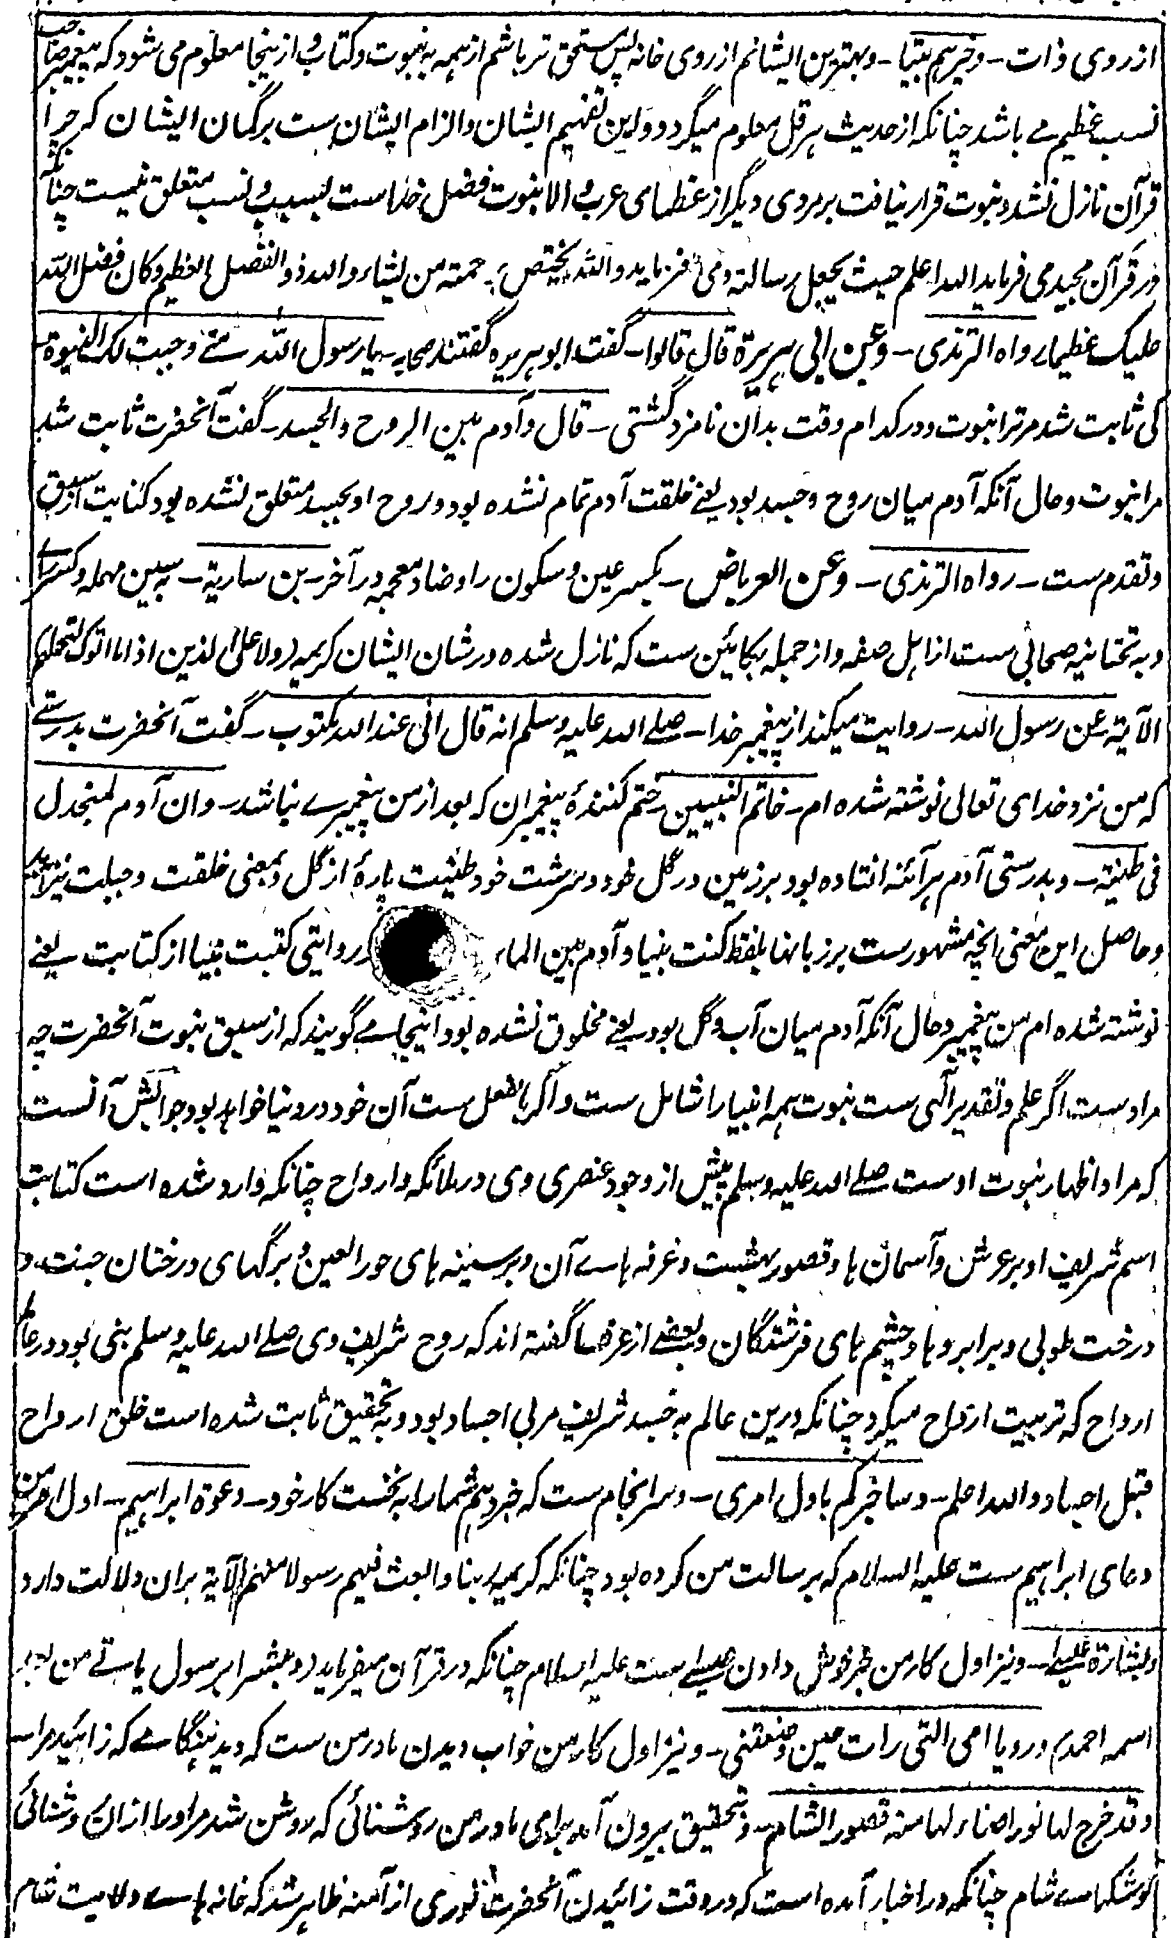 از روی ذات ـ وخیرهم بیتا ـ و بهترین ایشانم از روی خانه پس مستحق تر باشم از همه به نبوت و کتاب و از ینجا معلوم می شود که پیغمبر صاحب
نسب عظیم می باشد چنانکه از حدیث هرقل معلوم میگردد و این تفهیم ایشان و الزام ایشان ست بر گمان ایشان که چرا
قرآن نازل نشد و نبوت قرار نیافت بر مردی دیگر از عظمای عرب و الا نبوت فضل خداست بسبب و نسب متعلق نیست چنانکه
در قرآن مجید می فرماید الله اعلم حیث یجعل رسالته و می فرماید والله یختص برحمته من یشاء والله ذو الفضل العظیم و کان فضل الله
علیک عظیما رواه الترمذی ـ وعن ابی هریرة قال قالوا ـ گفت ابو هریره گفتند صحابه ـ یا رسول الله متی وجبت لک النبوة ـ
کی ثابت شد مر ترا نبوت و در کدام وقت بدان نامزد گشتی ـ قال وآدم بین الروح والجسد ـ گفت آنحضرت ثابت شد
مرا نبوت و حال آنکه آدم میان روح و جسد بود یعنی خلقت آدم تمام نشده بود و روح او بجسد متعلق نشده بود کنایت از سبق
و تقدم ست ـ رواه الترمذی ـ وعن العرباض ـ بکسر عین و سکون را و ضاد معجمه در آخر ـ بن ساریة ـ به سین مهمله و کسر رای
و به تحتانیه صحابی ست از اهل صفه و از جمله بکائین ست که نازل شده در شان ایشان کریمه (ولا علی الذین اذا ما اتوک لتحملهم
الآیة) عن رسول الله ـ روایت میکند از پیغمبر خدا ـ صلی الله علیه وسلم انه قال انی عند الله مکتوب ـ گفت آنحضرت بدرستی
که من نزد خدای تعالی نوشته شده ام ـ خاتم النبیین ـ ختم کنندهٔ پیغمبران که بعد از من پیغمبری نباشد ـ وان آدم لمنجدل
فی طینته ـ و بدرستی آدم هر آئنه افتاده بود بر زمین در گل خود و سرشت خود طینت پارهٔ از گل و بمعنی خلقت و جبلت نیز آید
و حاصل این معنی آنچه مشهور ست بر زبانها بلفظ کنت نبیا وآدم بین الماء در روایتی کتبت نبیا از کتابت یعنی
نوشته شده ام من پیغمبر و حال آنکه آدم میان آب و گل بود یعنی مخلوق نشده بود اینجا می گویند که از سبق نبوت آنحضرت چه
مراد ست اگر علم و تقدیر الهی ست نبوت همه انبیا را شامل ست و اگر بالفعل ست آن خود در دنیا خواهد بود جوابش آنست
که مراد اظهار نبوت اوست صلی الله علیه وسلم پیش از وجود عنصری وی در ملائکه و ارواح چنانکه وارد شده است کتابت
اسم شریف او بر عرش و آسمان ها و قصور بهشت و غرفه های آن و بر سینه های حور العین و برگهای درختان جنت و
درخت طوبی و بر ابرو ها و چشم های فرشتگان و بعضی از عرفا گفته اند که روح شریف وی صلی الله علیه وسلم نبی بود در عالم
ارواح که تربیت ارواح میکرد چنانکه درین عالم به جسد شریف مربی اجساد بود و به تحقیق ثابت شده است خلق ارواح
قبل اجساد والله اعلم ـ وساخبرکم باول امری ـ و سر انجام ست که خبر دهم شما را به نخست کار خود ـ دعوة ابراهیم ـ اول امر من
دعای ابراهیم ست علیه السلام که بر رسالت من کرده بود چنانکه کریمه (ربنا وابعث فیهم رسولا منهم الآیة) بران دلالت دارد
وبشارة عیسی ـ و نیز اول کار من خبر خوش دادن عیسی است علیه السلام چنانکه در قرآن میفرماید (ومبشرا برسول یاتی من بعدی
اسمه احمد) ورویا امی التی رات حین وضعتنی ـ و نیز اول کار من خواب دیدن مادر من ست که دید هنگامی که زائید مرا ـ
وقد خرج لها نور اضاء لها منه قصور الشام ـ و تحقیق بیرون آمد برای مادر من روشنائی که روشن شد مر او را ازان روشنائی
کوشکهای شام چنانکه در اخبار آمده است که در وقت زائیدن آنحضرت نوری از آمنه ظاهر شد که خانه های ولایت شام